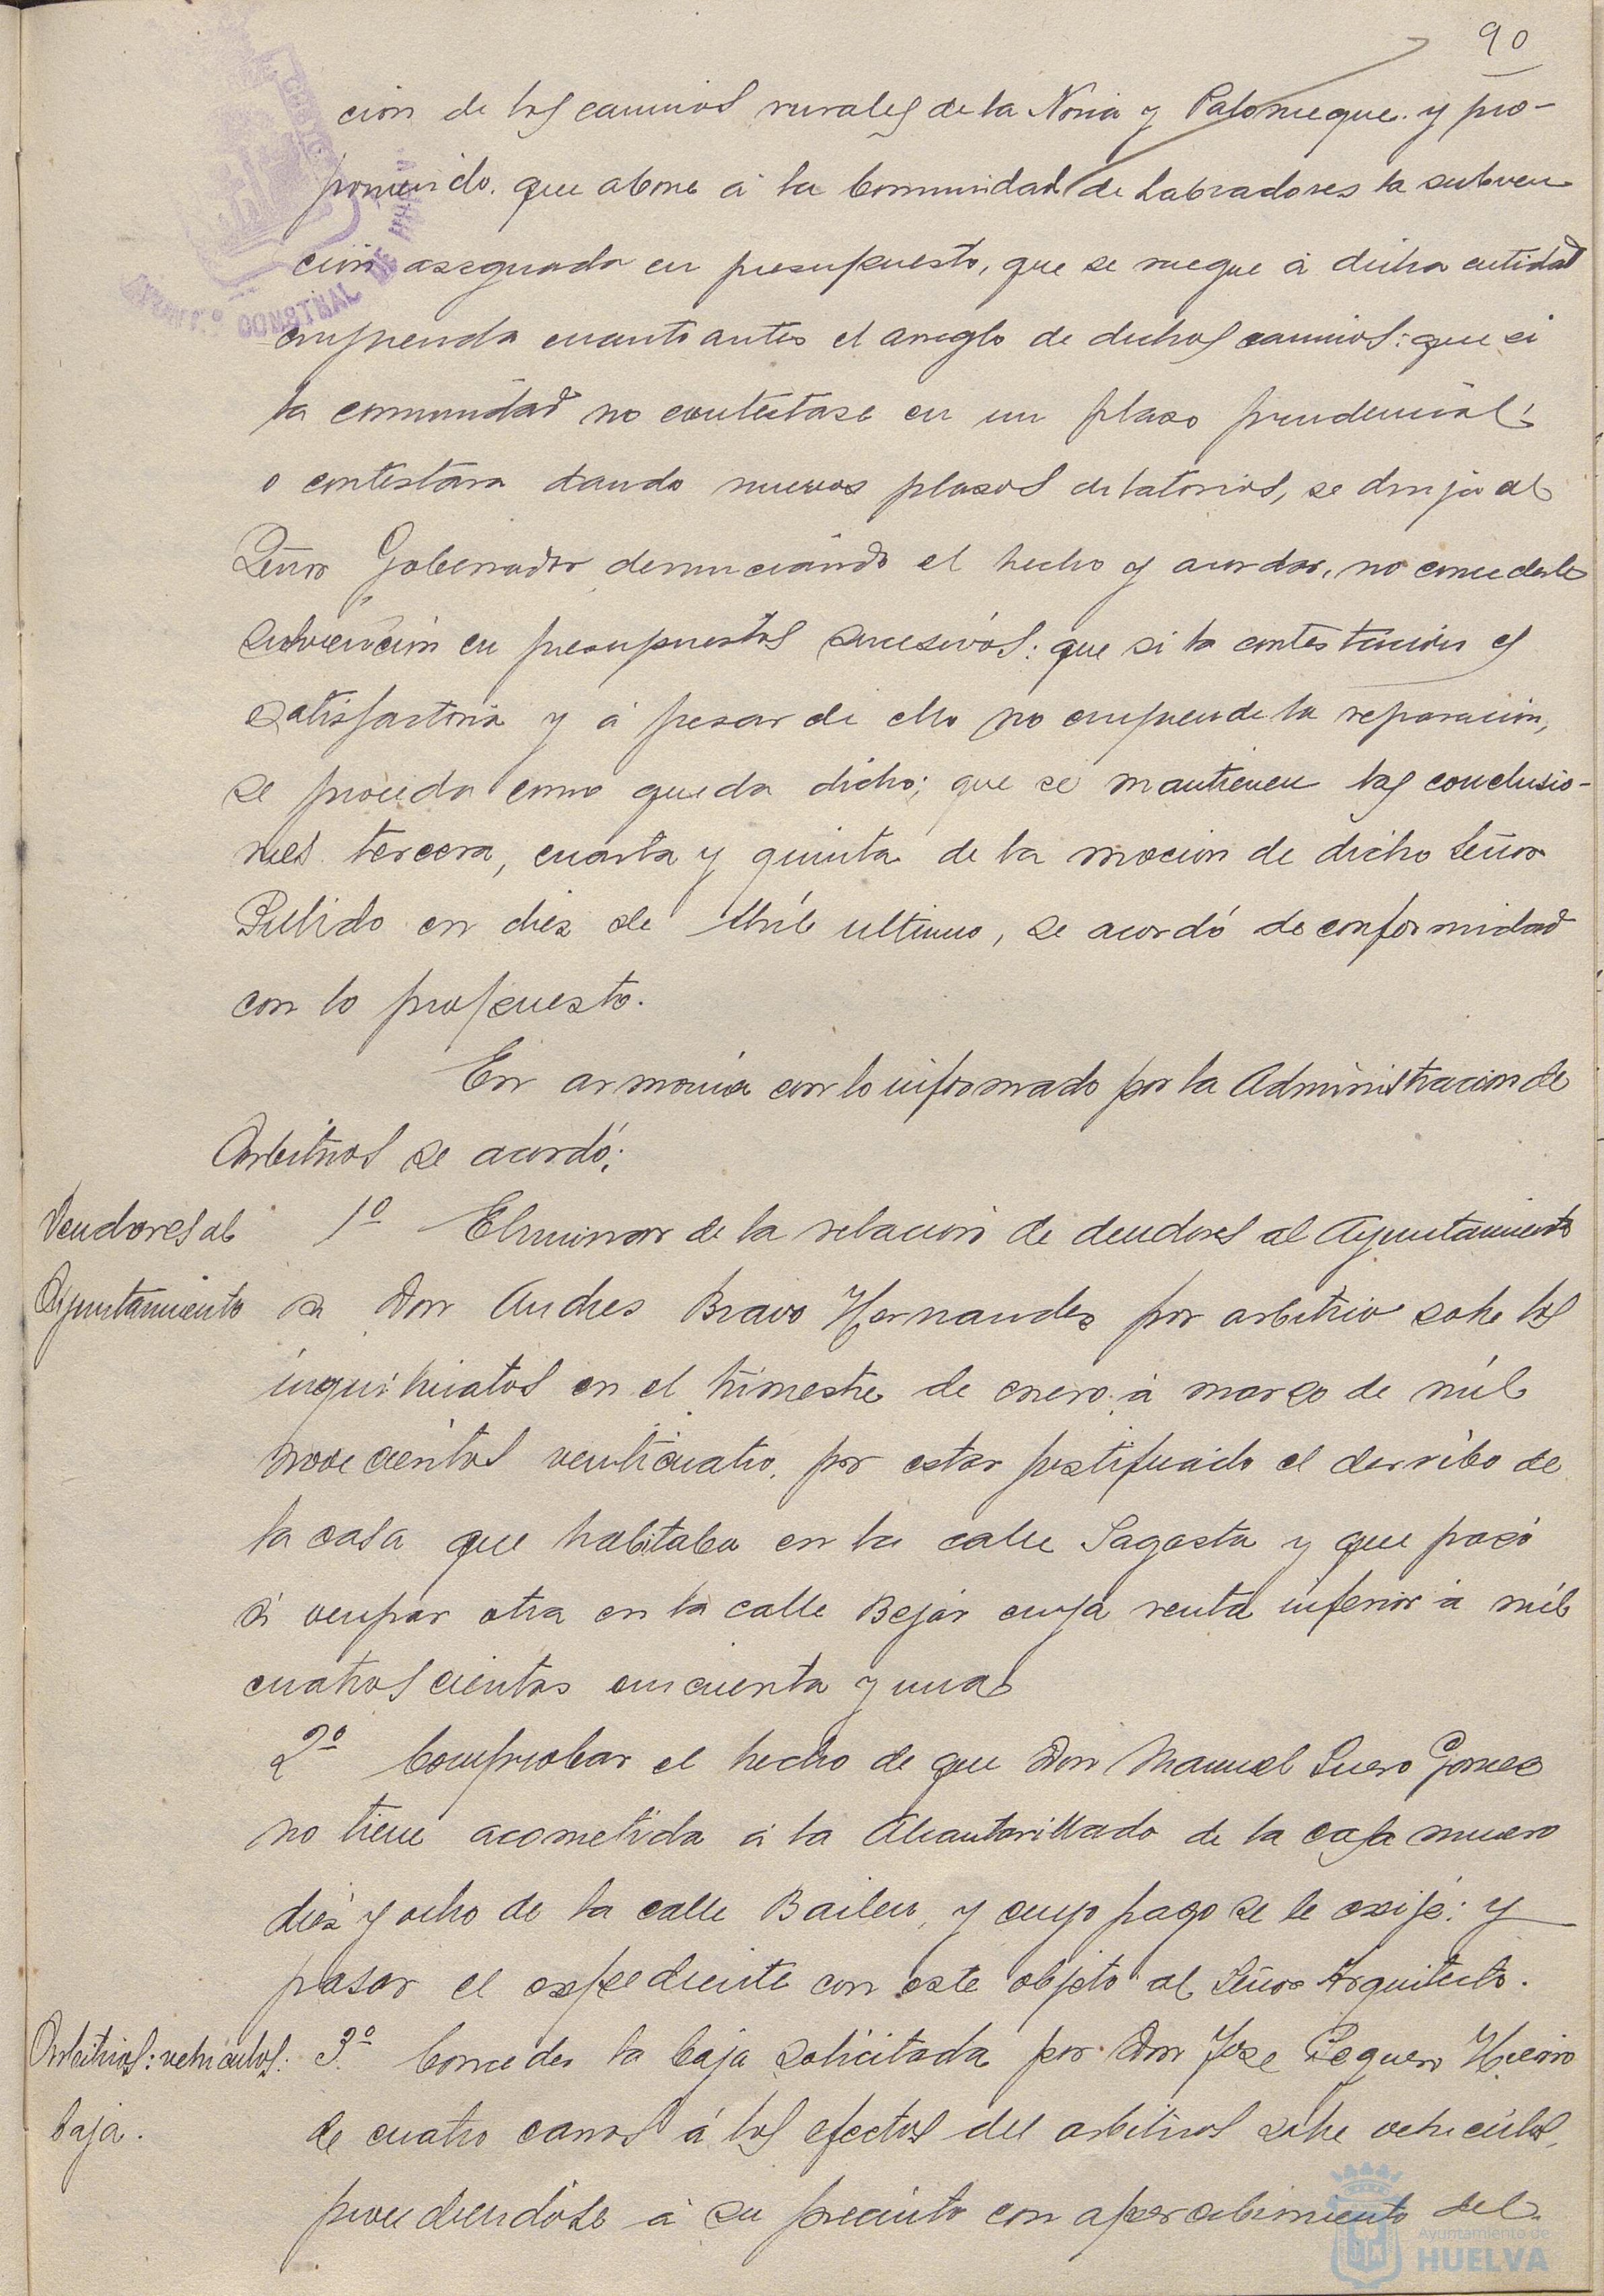 90
cion de los caminos rurales de la Noria y Palomeque. y pro-
poniendo. que abone á la Comunidad de Labradores la subven
ción asignada en presupuesto, que se ruegue á dicha entidad
emprenda cuanto antes el arreglo de dichos caminos: que si
la comunidad no contestase en un plazo prudencial,
o contestara dando nuevos plasos dilatorios, se dirija al
Señor Gobernador denunciando el hecho y acordar, no concederle
subvención en presupuestos sucesivos: que si la contestación es
satisfactoria y á pesar de ello no emprende la reparación,
se proceda como queda dicho; que se mantienen las conclusio-
nes tercera, cuarta y quinta de la mocion de dicho Señor
Pulido en dies de Abril ultimo, se acordó de conformidad
con lo propuesto.
En armonia con lo informado por la Administracion de
Arbitrios se acordó:
Deudores al
Ayuntamiento
1º Eliminar de la relación de deudores al Ayuntamiento
a Don Andres Bravo Hernandes por arbitrio sobre los
inquilinatos en el trimestre de enero á marzo de mil
novecientos venticuatro, por estar justificado el derribo de
la casa que habitaba en la calle Sagasta y que pasó
á ocupar otra en la calle Bejar cuya renta inferior á mil
cuatroscientas cincuenta y una
2º Comprobar el hecho de que Don Manuel Suero Gomes
no tiene acometida á la Alcantarillado de la casa numero
dies y ocho de la calle Bailen, y cuyo pago se le exije: y
pasar el expediente con este objeto al Señor Arquitecto.
Arbitrios: vehiculos:
baja.
3º Conceder la baja solicitada por Don Jose Peguero Hierro
de cuatro carros á los efectos del arbitrios sobre vehiculos,
procediendose á su precinto con apercibimiento del
Ayuntamiento de
HUELVA